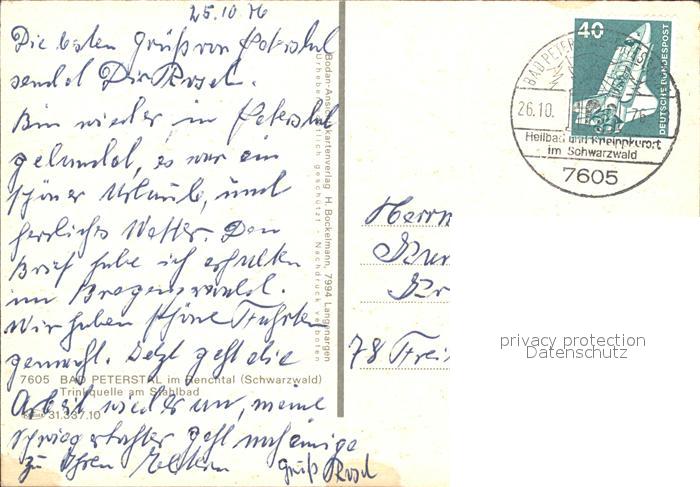 25.10 76
Die besten Grüße von Peterstal
sendet Dir Rosel.
Bin wieder in Peterstal
gelandet, es war ein
schöner Urlaub, und
herrliches Wetter. Den
Brief habe ich erhalten
im Bregenzerwald.
Wir haben schöne Fahrten
gemacht. Jetzt geht die
7605 BAD PETERSTAL im Renchtal (Schwarzwald)
Trinkquelle am Stahlbad
Arbeit wieder an, meine
31.337.10
Schwiegertochter geht
zu Ihren Eltern Gruß Rosel
Bodan-Ansichtskartenverlag H. Bockelmann, 7994 Langenargen
Urheberrechtlich geschützt - Nachdruck verboten
40
DEUTSCHE BUNDESPOST
BAD PETERSTAL
26.10. 76
Heilbad und Kneippkurort
im Schwarzwald
7605
Herrn
78 Frei
privacy protection
Datenschutz